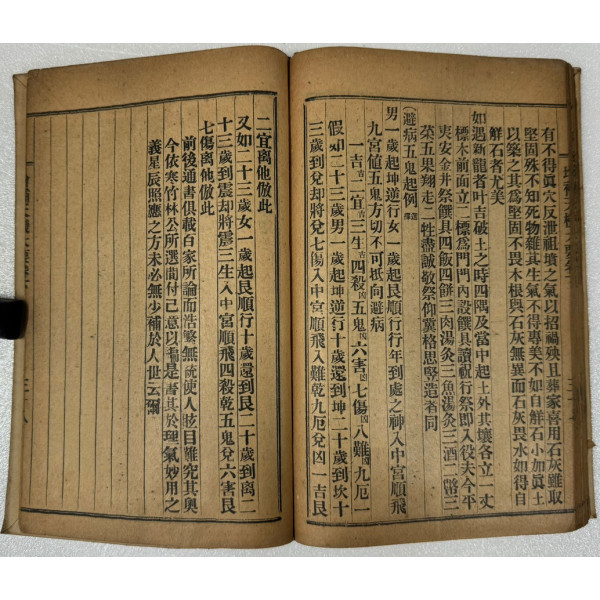 有不得眞穴反泄祖墳之氣以招禍殃且葬家喜用石灰雖取
堅固殊不知死物難其生氣不得專美不如白鮮石小加眞土
以築之其爲堅固不畏木根與石灰無異而石灰畏水如得自
鮮石者尤美
如遇新龍者叶吉破土之時四隅及當中起土外其壤各立一丈
標木前面立二標爲門門內設饌具讀祝行祭即入役夫今平
夾安金井祭饌具四飯四餠三肉湯灸三魚湯灸三酒二幣三
菜五果翔走二牲盡誠敬祭仰冀格思堅造者同
(避病五鬼起例
男一歲起坤逆行女一歲起艮順行行年到處之神入中宮順飛
九宮値五鬼方切不可抵向避病
一吉吉二宜吉三生吉四殺凶五鬼凶六害凶七傷凶八難凶九厄一
假如二十三歲男一歲起坤逆行十歲還到坤二十歲到坎十
三歲到兌却將兌七傷入中宮順飛八難乾九厄兌凶一吉艮
二宜离他倣此
又如二十三歲女一歲起艮順行十歲還到艮二十歲到离二
十三歲到震却將震三生入中宮順飛四殺乾五鬼兌六害艮
七傷离他倣此
前後通書俱載百家所論而浩繁無統使人眩目難究其奧
今依寒竹林公所選間付己意以編是書其於理氣妙用之
義星辰照應之方未必無少補於人世云爾